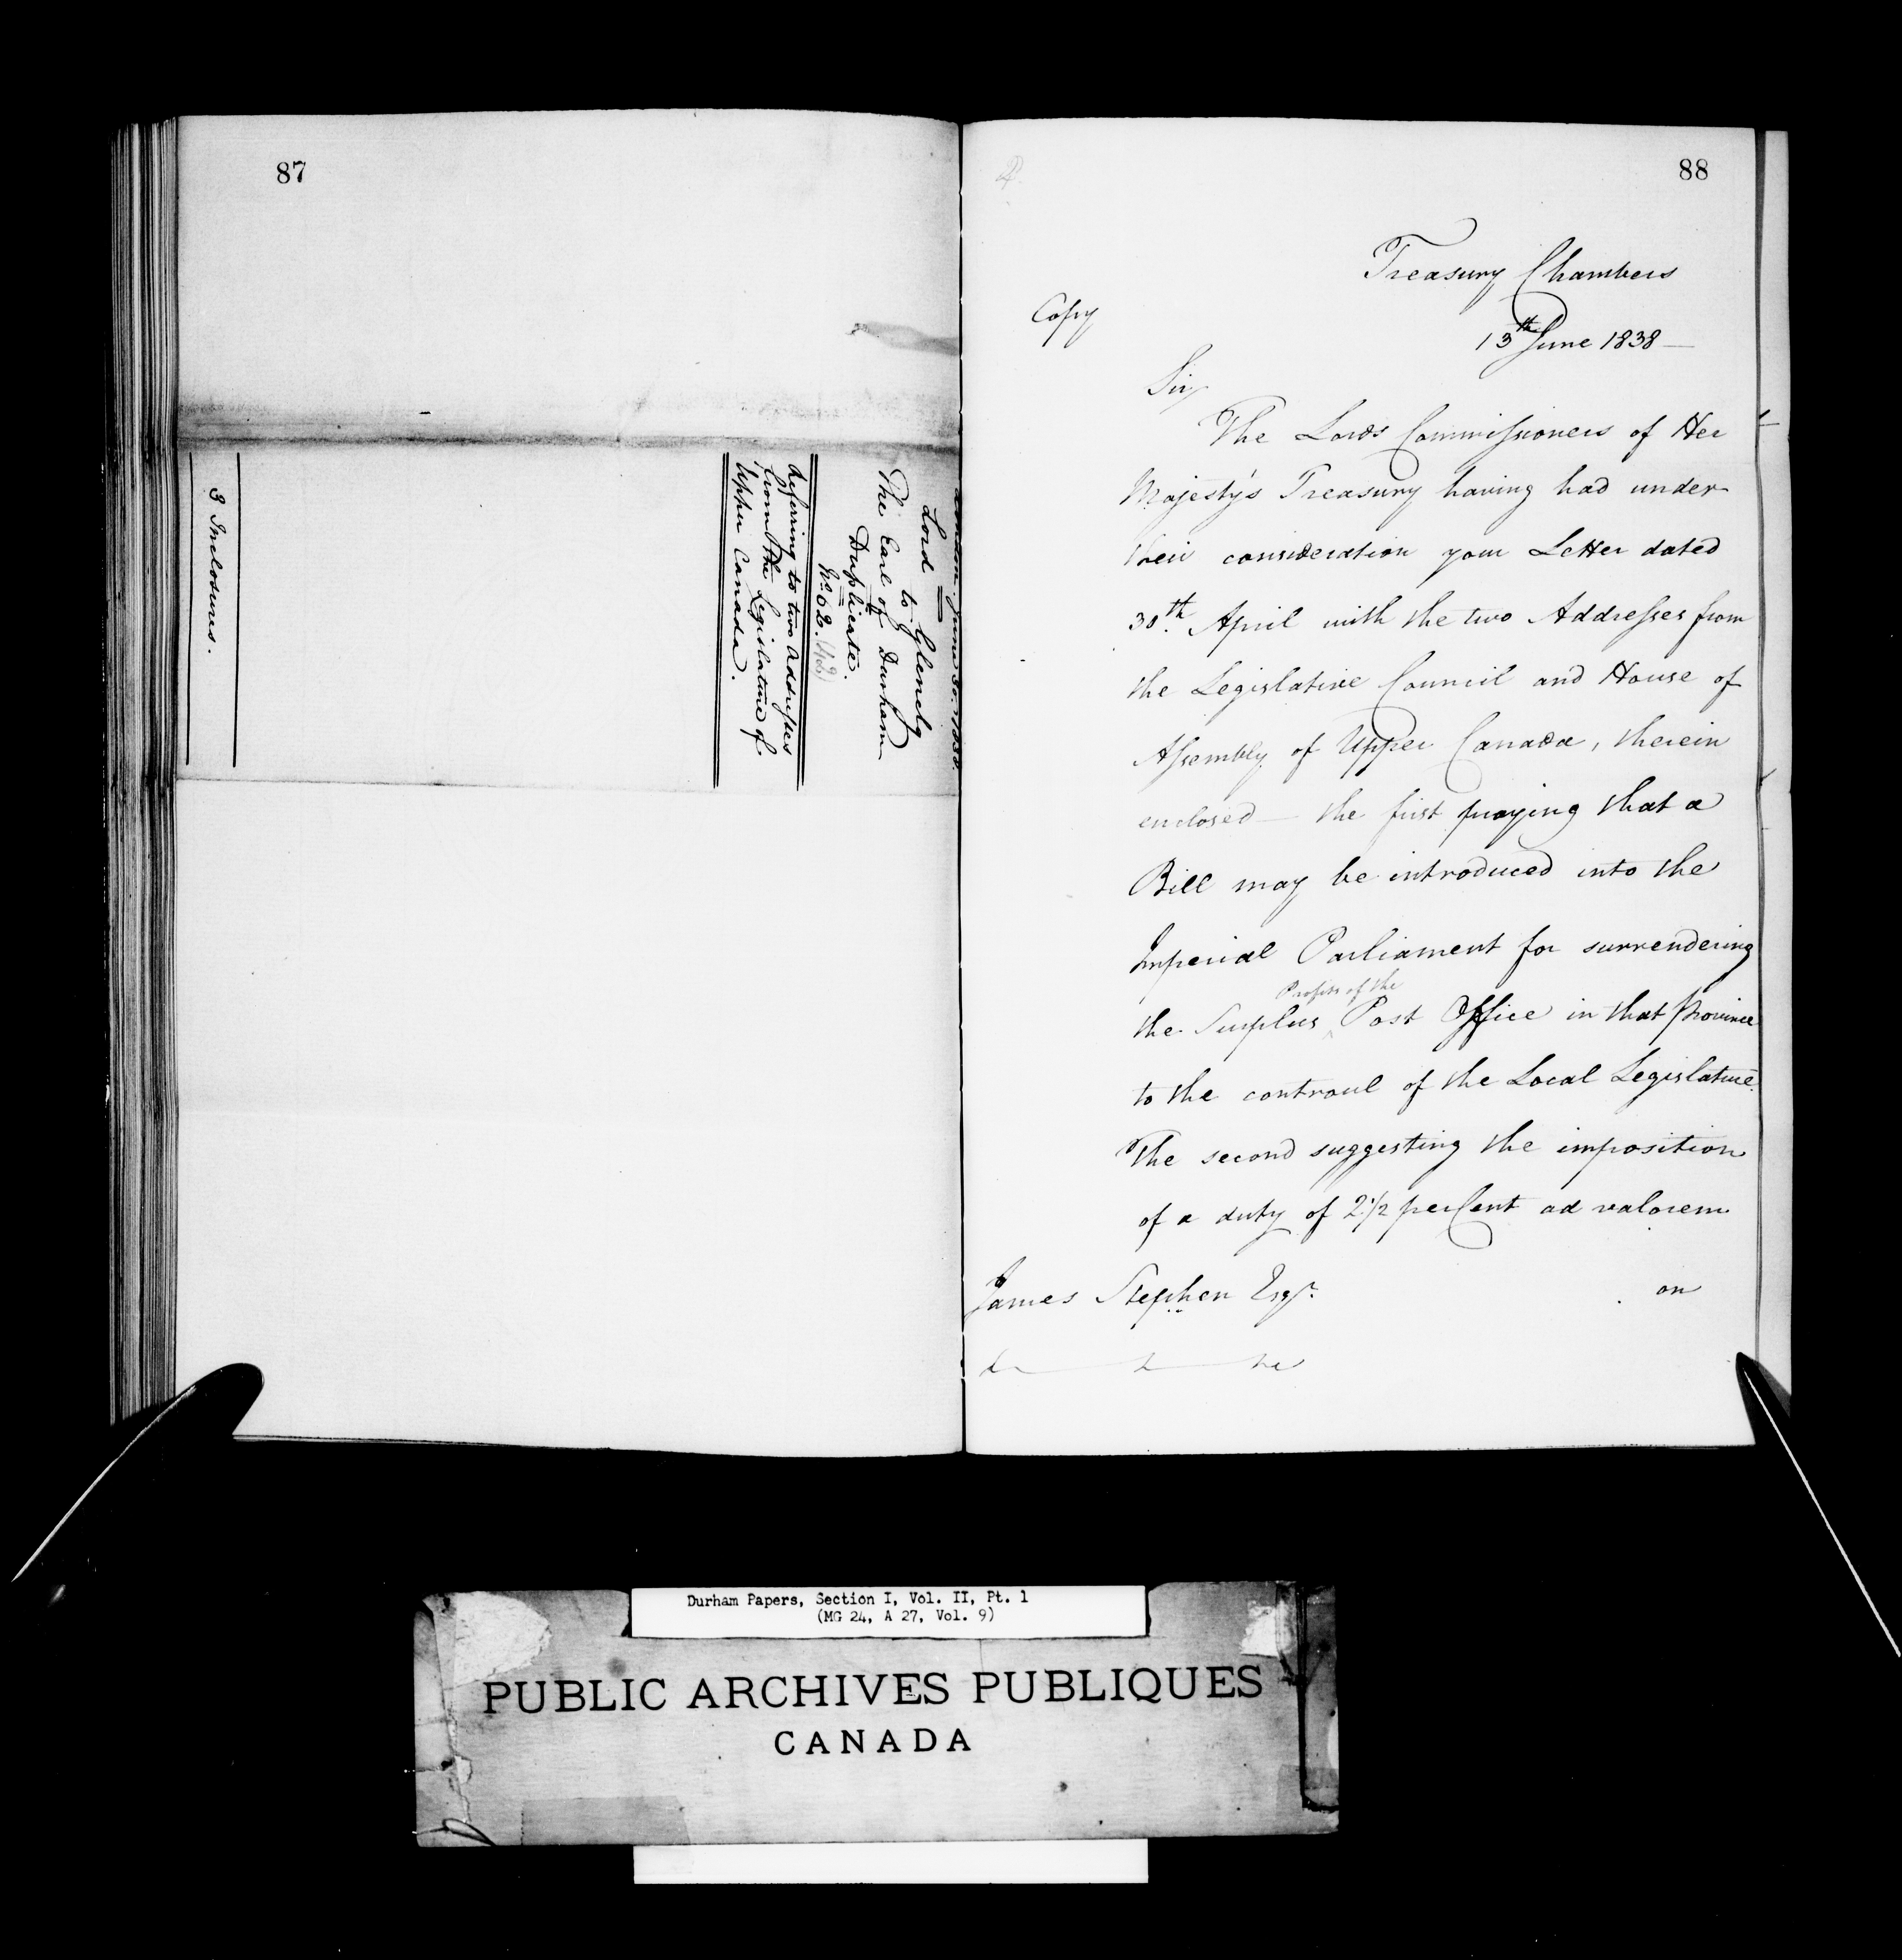 87
June 30. 1838.
Lord Glenelg
to
The Earl of Durham
Duplicate.
No. 62. (42)
Referring to two Addresses
from the Legislature of
Upper Canada.
3 Inclosures.
88
Treasury Chambers
13th June 1838
Copy
Sir
The Lords Commissioners of Her
Majesty's Treasury having had under
their consideration your Letter dated
30th. April with the two Addresses from
the Legislative Council and House of
Assembly of Upper Canada, therein
enclosed — the first praying that a
Bill may be introduced into the
Imperial Parliament for surrendering
Profits of the
the Surplus ^ Post Office in that Province
to the controul of the Local Legislature.
The second suggesting the imposition
of a duty of 2 1/2 per Cent ad valorem
James Stephen Esqr.
on
Durham Papers, Section I, Vol. II, Pt. 1
(MG 24, A 27, Vol. 9)
PUBLIC ARCHIVES PUBLIQUES
CANADA